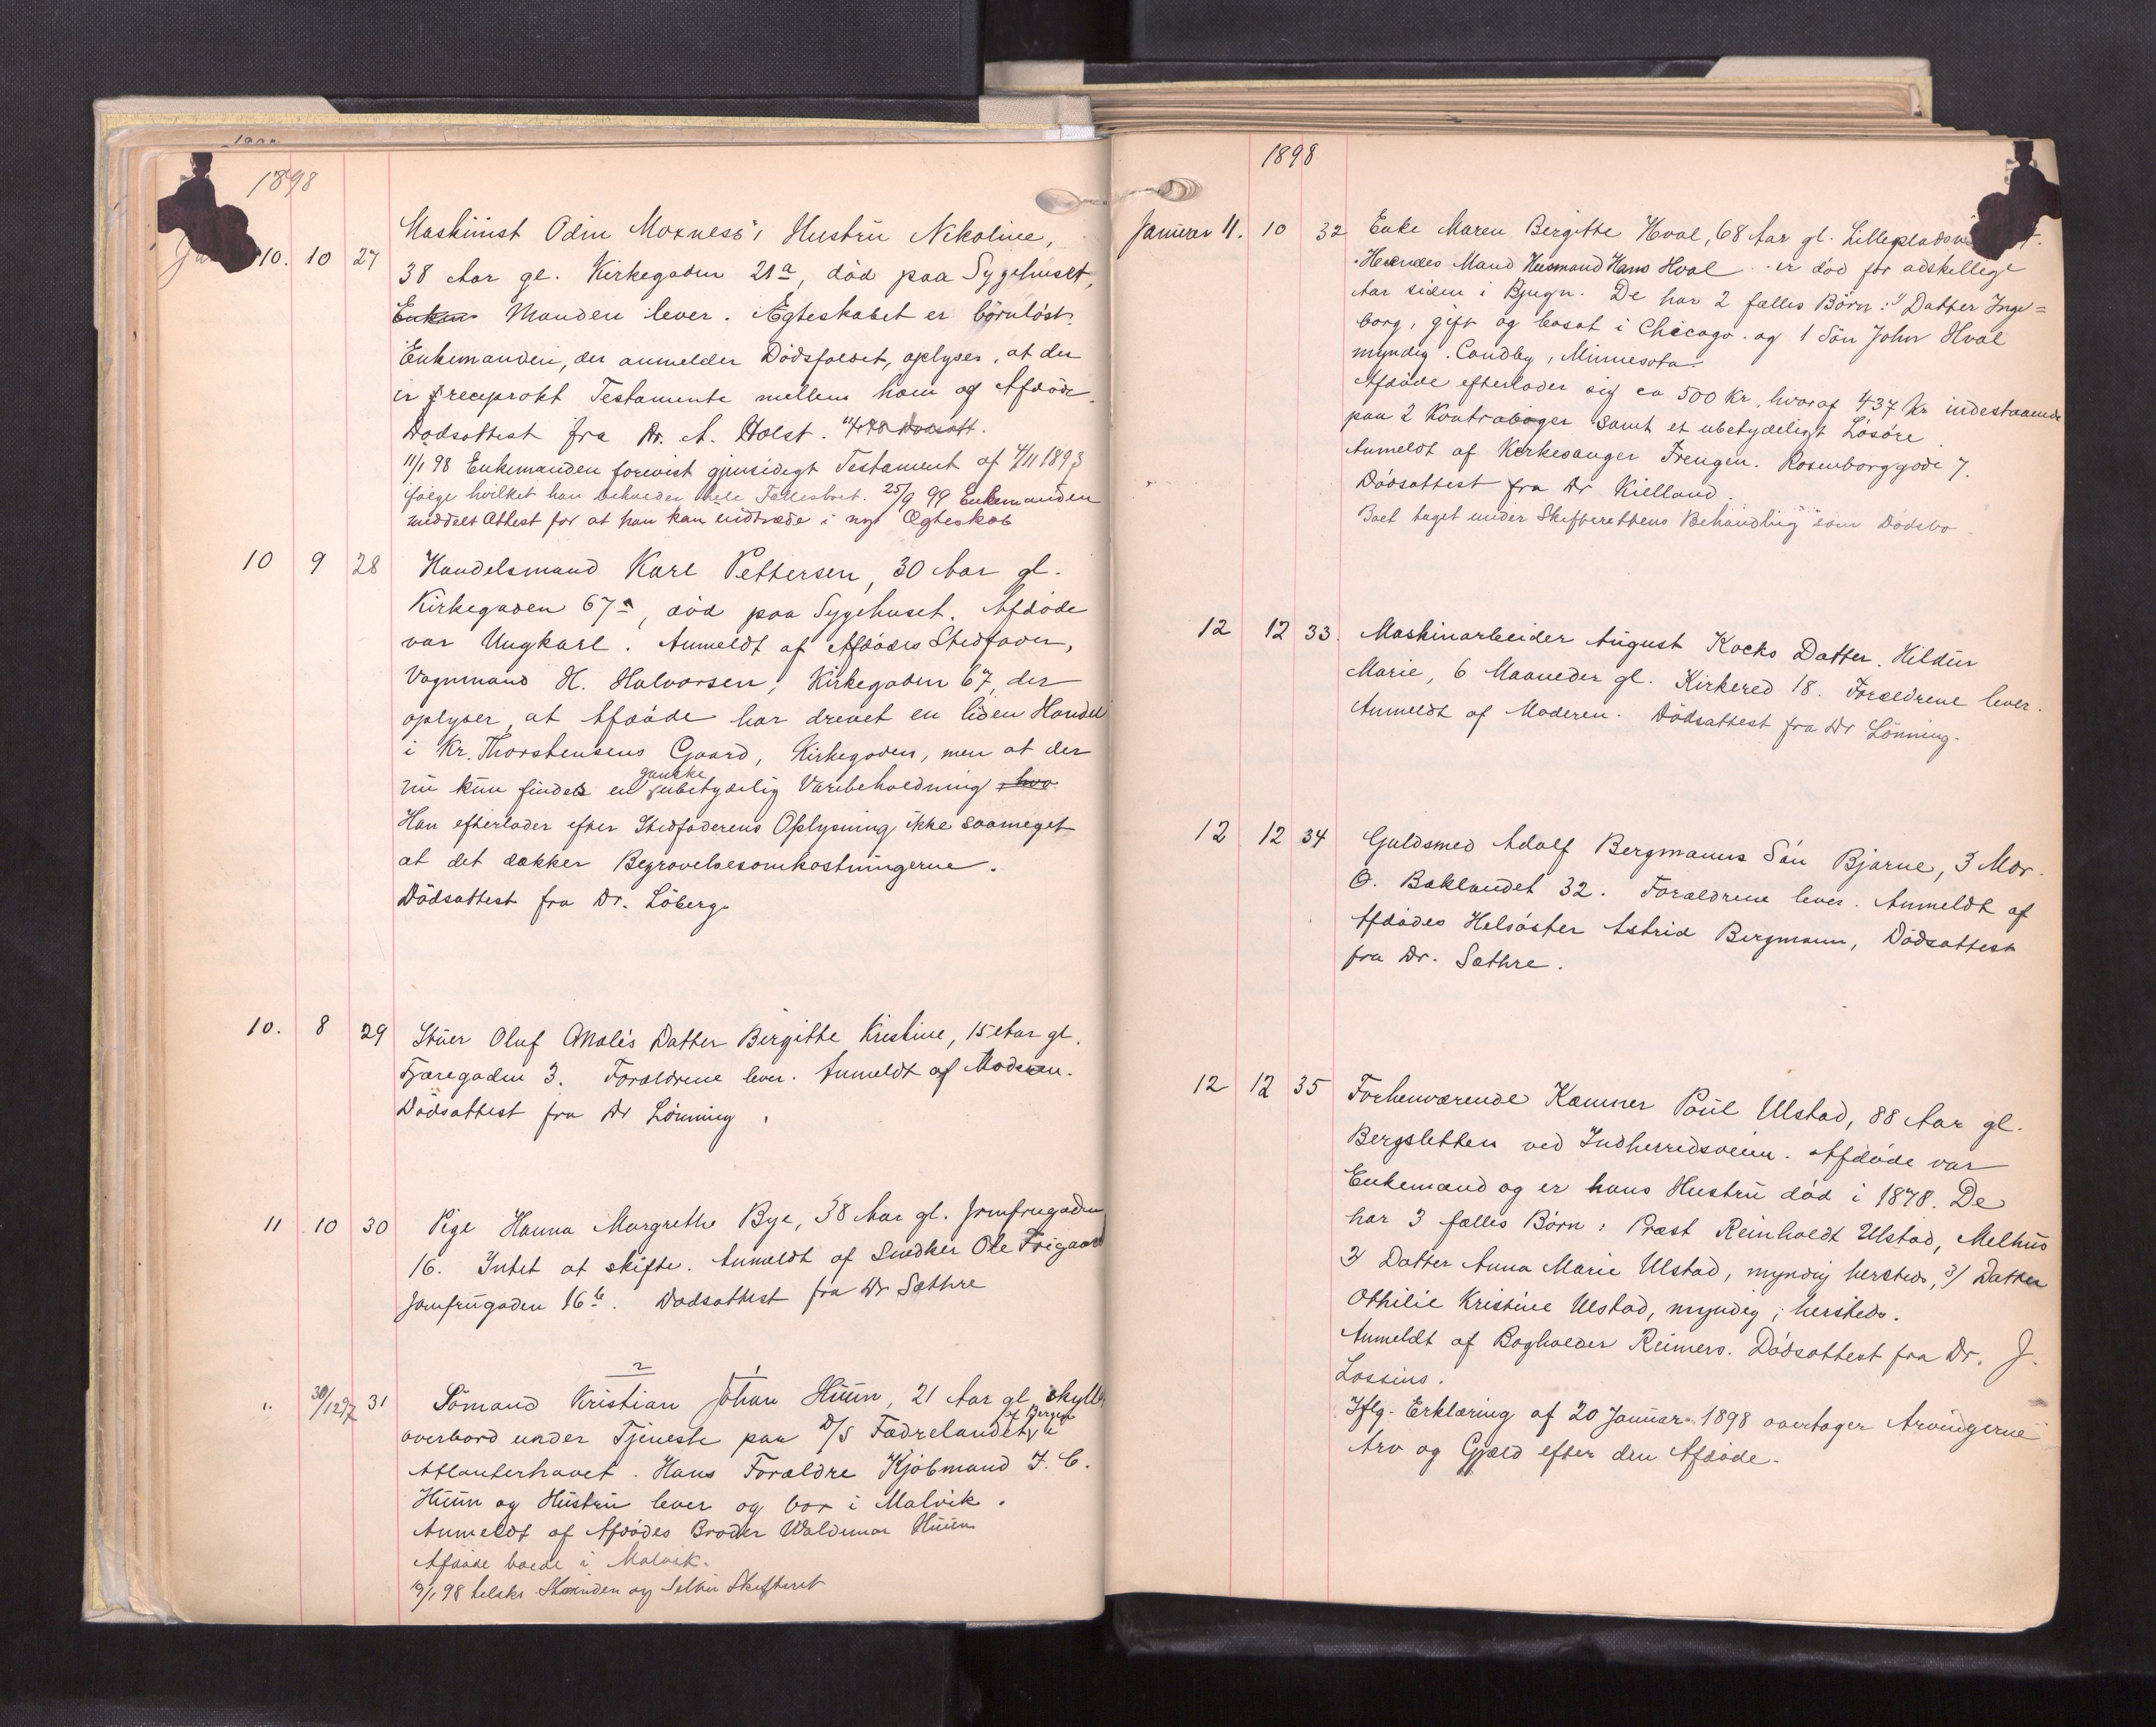 1898
10. 10 27 Maskinist Odin Moxness's Hustru Nikoline,
38 Aar gl. Kirkegaden 21a, död paa Sygehuset,
Enken Manden lever. Ægteskabet er börnlöst.
Enkemanden, der anmelder Dödsfaldet, oplyser, at der
er reciprokt Testamente mellem ham og Afdöde.
Dödsattest fra Dr. A. Holst.
11/1 98 Enkemanden forevist gjensidigt Testament af 4/11 1893
ifölge hvilket han beholder hele Fællesboet. 25/9 99 Enkemanden
meddelt Attest for at han kan indtræde i nyt Ægteskab
10 9 28 Handelsmand Karl Pettersen, 30 Aar gl.
Kirkegaden 67a, död paa Sygehuset. Afdöde
var Ungkarl. Anmeldt af Afdödes Stedfader,
Vognmand H. Halvorsen, Kirkegaden 67, der
oplyser, at Afdöde har drevet en liden Handel
i Kr. Thorstensens Gaard, Kirkegaden, men at der
nu kun findes en ganske ubetydelig Varebeholdning, hvo
Han efterlader efter Stedfaderens Oplysning ikke saameget
at det dækker Begravelsesomkostningerne.
Dödsattest fra Dr. Löberg.
10. 8 29 Stuer Oluf Moli's Datter Birgitte Kristine, 15 Aar gl.
Fjæregaden 3. Forældrene lever. Anmeldt af Moderen.
Dödsattest fra Dr Lönning.
11 10 30 Pige Hanna Margrethe Bye, 38 Aar gl. Jomfrugaden
16. Intet at skifte. Anmeldt af Snedker Ole Frigaard
Jomfrugaden 16b. Dødsattest fra Dr Sæthre
2 1
30/12 97 31 Sömand Kristian Johan Huun, 21 Aar gl. skyllet
overbord under Tjeneste paa D/S Fædrelandet af Bergen i
Atlanterhavet. Hans Forældre Kjöbmand J. C.
Huun og Hustru lever og bor i Malvik.
Anmeldt af Afdödes Broder Waldemar Huun
Afdöde boede i Malvik.
19/1 98 tilskr. Strinden og Selbu Skifteret
1898
Januar 11. 10 32 Enke Maren Birgitte Hval, 68 Aar gl.
Hendes Mand Husmand Hans Hval er död for adskellige
Aar siden i Bjugn. De har 2 fælles Börn: 1/ Datter Inge=
borg, gift og bosat i Chicago. og 1 Sön John Hval
myndig. Candby, Minnesota.
Afdöde efterlader sig ca 500 Kr, hvoraf 437 Kr indestaaende
paa 2 Kontraböger samt et ubetydeligt Lösöre
Anmeldt af Kirkesanger Frengen. Rosenborggade 7.
Dödsattest fra Dr Kielland.
Boet taget under Skifterettens Behandling som Dödsbo
12 12 33. Maskinarbeider August Kocks Datter. Hildur
Marie, 6 Maaneder gl. Kirkered 18. Forældrene lever.
Anmeldt af Moderen. Dödsattest fra Dr Lönning.
12 12 34 Guldsmed Adolf Bergmanns Sön Bjarne, 3 Mdr.
Ö. Baklandet 32. Forældrene lever. Anmeldt af
Afdödes Helsöster Astrid Bergmann, Dödsattest
fra Dr. Sæthre.
12 12 35 Forhenværende Kæmner Poul Ulstad, 88 Aar gl.
Bergsletten ved Indherredsveien. Afdöde var
Enkemand og er hans Hustru död i 1878. De
har 3 fælles Börn: Præst Reinholdt Ulstad, Melhus
2/ Datter Anna Marie Ulstad, myndig hersteds, 3/ Datter
Othilie Kristine Ulstad, myndig, hersteds.
Anmeldt af Bogholder Reimers. Dödsattest fra Dr. J.
Lossius.
Iflg. Erklæring af 20 Januar 1898 overtager Arvingerne
Arv og Gjæld efter den Afdöde.